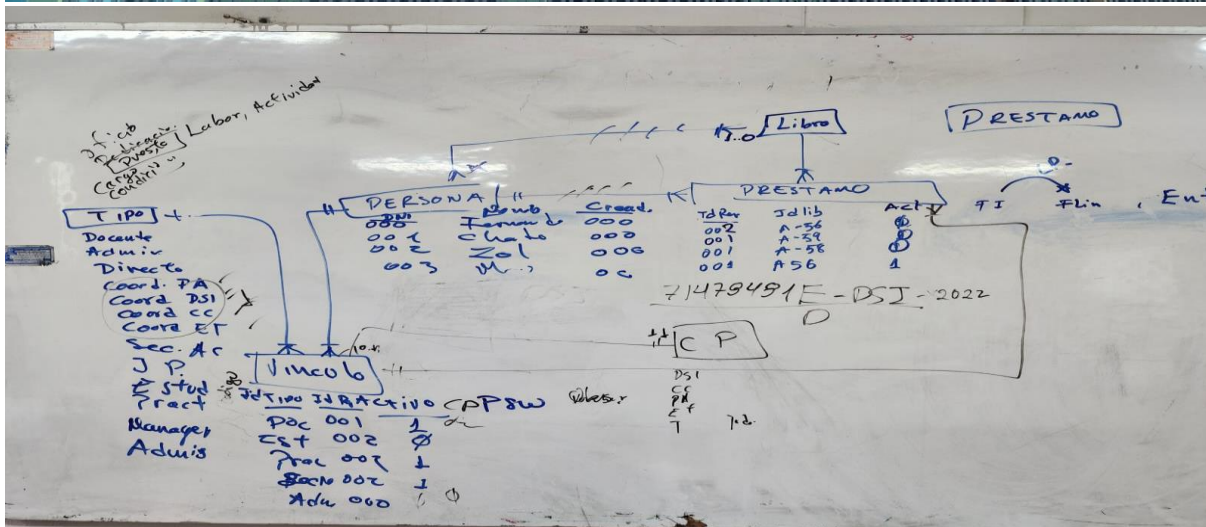 Labor, Actividad
Puesto
Cargo
TIPO
Docente
Admin
Directo
Coord. PA
Coord DSI
Coord CC
Coord ET
Sec. Ac
J P.
Estud
Pract
Manager
Admis
Libro
1..0
PRESTAMO
PERSONA
DNI Nomb Cread.
000 Fernando 000
001 Chato 000
002 Zol 006
003
PRESTAMO
IdPer Idlib Act
002 A-56
001 A-59
001 A-58
001 A56 1
FI FLin , Ent
71479491 E - DSI - 2022
D
CP
DSI
CC
PA
ET
T
Vinculo
IdTipo IdP Activo CP PSW
Doc 001 1
Est 002 0
Prac 002 1
Secre 002 1
Adm 000